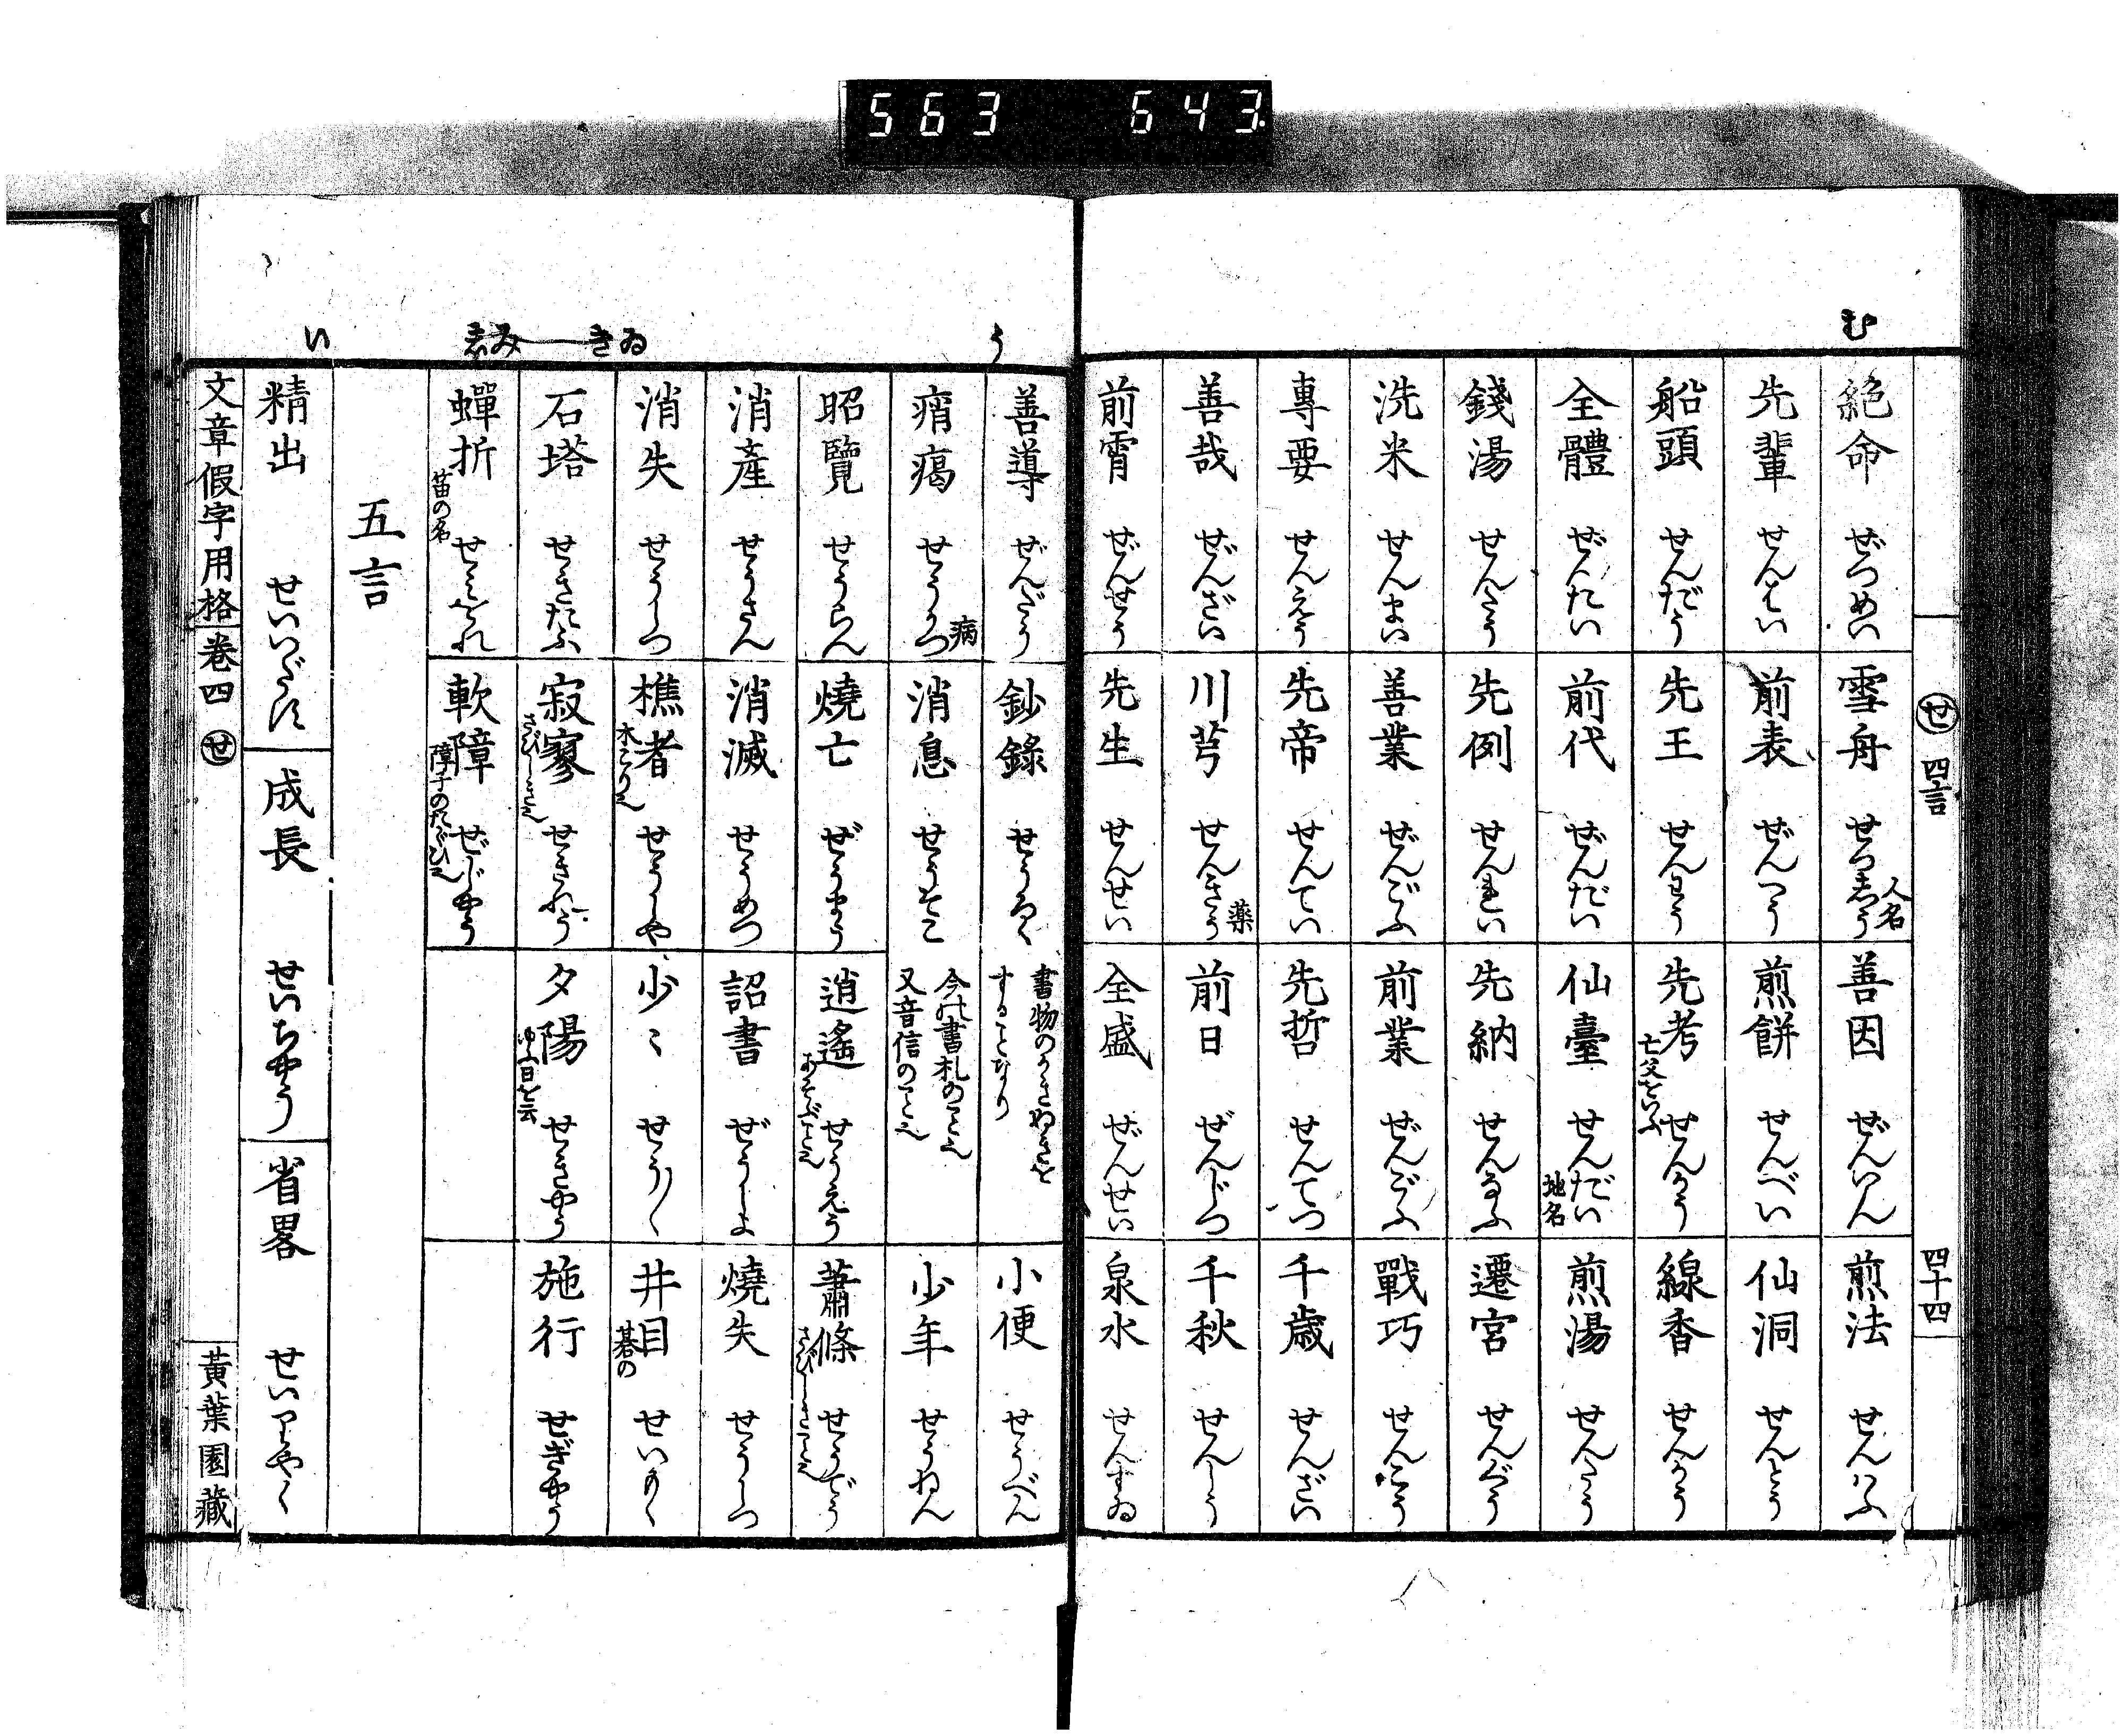 563 643
む
せ 四言 四十四
絶命 ぜつめい
雪舟 せつしう 人名
善因 ぜんいん
煎法 せんハふ
先輩 せんはい
前表 ぜんへう
煎餅 せんべい
仙洞 せんとう
船頭 せんどう
先王 せんわう
先考 亡父をいふ せんかう
線香 せんかう
全體 ぜんたい
前代 ぜんだい
仙臺 せんだい 地名
煎湯 せんたう
錢湯 せんたう
先例 せんれい
先納 せんなふ
遷宮 せんぐう
洗米 せんまい
善業 ぜんごふ
前業 ぜんごふ
戰巧 せんこう
專要 せんえう
先帝 せんてい
先哲 せんてつ
千歳 せんざい
善哉 ぜんざい
川芎 せんきう 薬
前日 ぜんじつ
千秋 せんしう
前霄 ぜんせう
先生 せんせい
全盛 ぜんせい
泉水 せんすゐ
う
ゐ
き
み
し
い
善導 ぜんだう
鈔錄 せうろく
書物のかきぬきを
することなり
小便 せうべん
痟瘑 せうかつ 病
消息 せうそこ
今の書札のこと也
又音信のこと也
少年 せうねん
昭覽 せうらん
燒亡 ぜうまう
逍遙 あそぶこと也 せうえう
蕭條 さびしきこと也 せうでう
消產 せうさん
消滅 せうめつ
詔書 ぜうしよ
燒失 せうしつ
消失 せうしつ
樵者 木こり也 せうしや
少〻 せう〳〵
井目 碁の せいもく
石塔 せきたふ
寂寥 さびしき也 せきれう
夕陽 ゆふ日を云 せきやう
施行 せぎやう
蟬折 笛の名 せみをれ
軟障 障子のたぐひ也 ぜじやう
五言
精出 せいいだす
成長 せいちやう
省畧 せいりやく
文章假字用格 卷四 せ
黃葉園藏